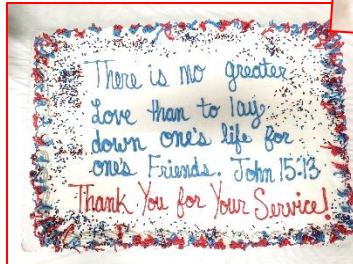 There is no greater
Love than to lay
down one's life for
one's Friends. John 15:13
Thank You for Your Service!